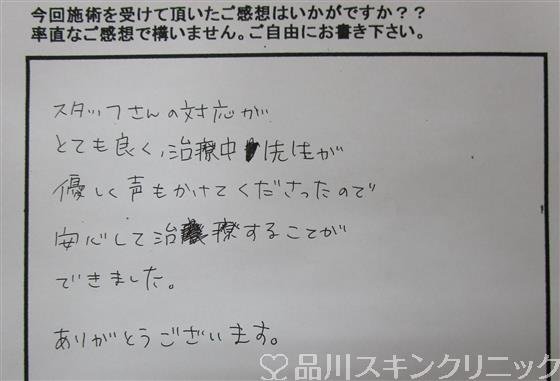 今回施術を受けて頂いたご感想はいかがですか？？
率直なご感想で構いません。ご自由にお書き下さい。
スタッフさんの対応が
とても良く、治療中 先生が
優しく声もかけてくださったので
安心して治療することが
できました。
ありがとうございます。
品川スキンクリニック